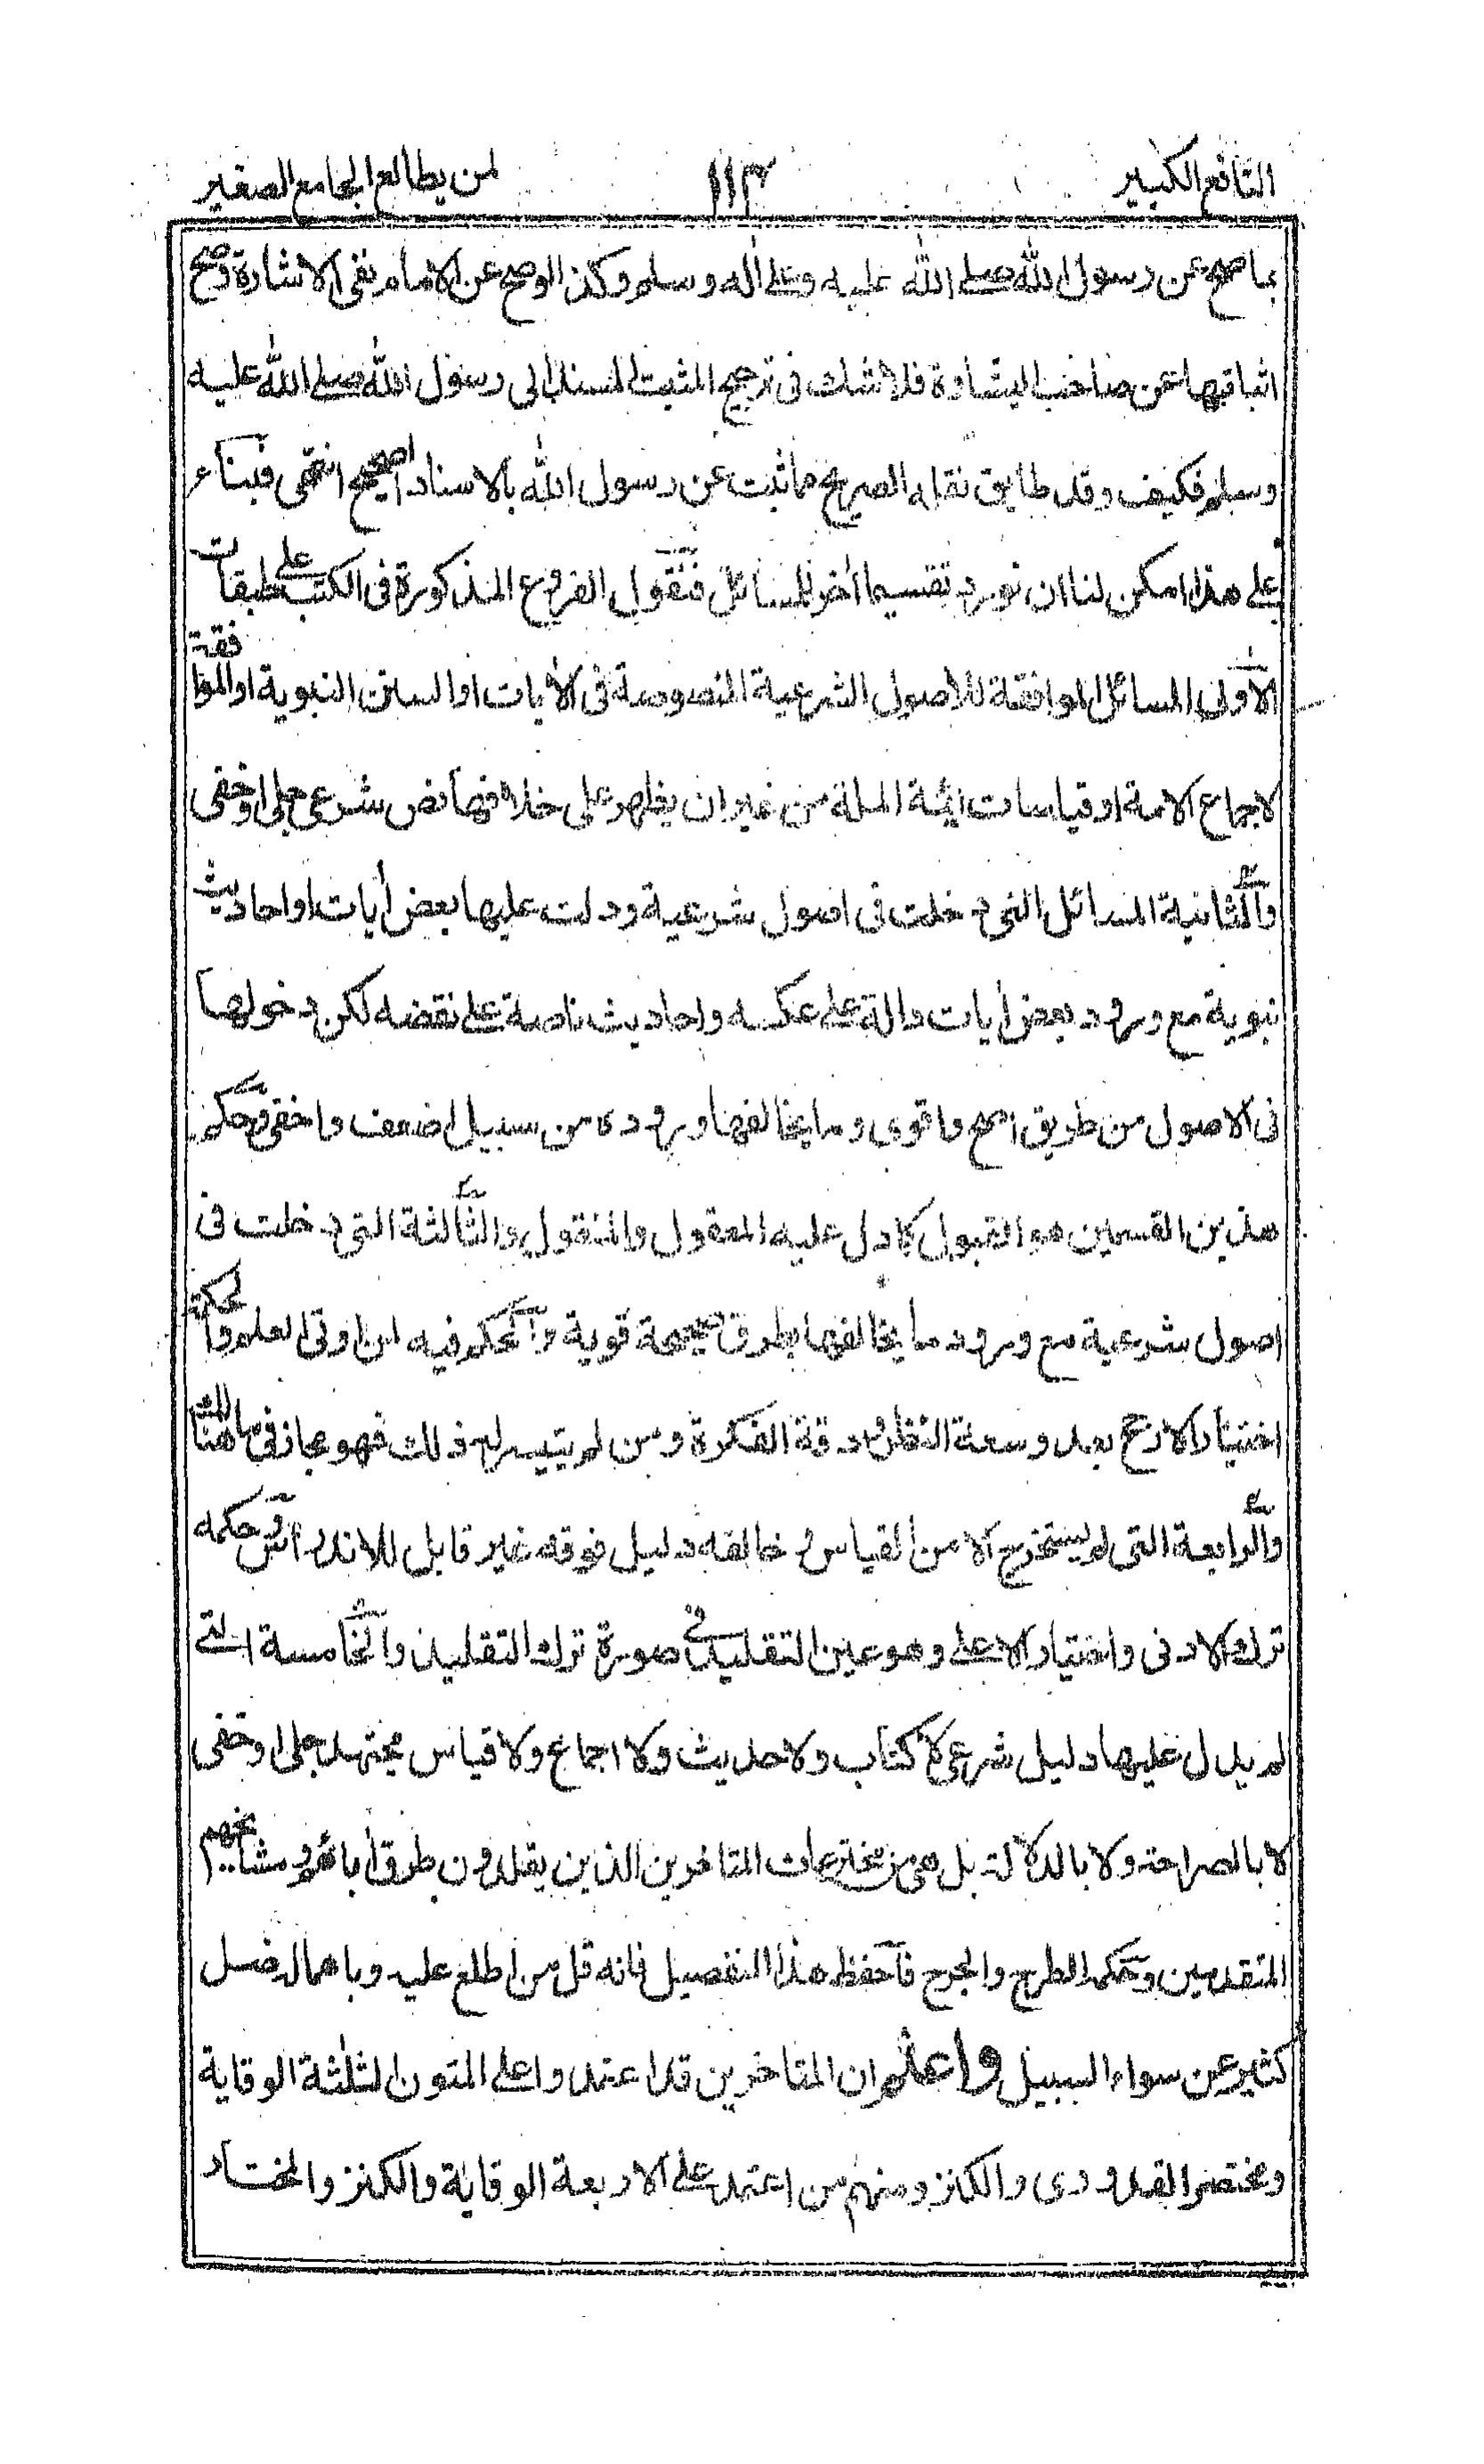 النافع الكبير ١١٣ لمن يطالع الجامع الصغير
بما صح عن رسول الله صلى الله عليه وعلى اله وسلم وكذا لو صح عن الامام نفى الاشارة وصح
اثباتها عن صاحب البشارة فلا شك فى ترجيح المثبت المسند الى رسول الله صلى الله عليه
وسلم فكيف وقد طابق نقله الصريح ما ثبت عن رسول الله بالاسناد الصحيح انتهى فبناء
على هذا امكن لنا ان نورد تقسيما اخر للمسائل فنقول الفروع المذكورة فى الكتب على طبقات
الاولى المسائل الموافقة للاصول الشرعية المنصوصة فى الأيات او السنن النبوية او الموافقة
لاجماع الامة او قياسات ائمة الملة من غير ان يظهر على خلافها نص شرعى جلى او خفى
والثانية المسائل التى دخلت فى اصول شرعية ودلت عليها بعض أيات او احاديث
نبوية مع ورود بعض أيات دالة على عكسه واحاديث ناصة على نقضه لكن دخولها
فى الاصول من طريق اصح واقوى وما يخالفها وروده من سبيل اضعف واخفى وحكم
هذين القسمين هو القبول كما دل عليه المعقول والمنقول والثالثة التى دخلت فى
اصول شرعية مع ورود ما يخالفها بطرق صحيحة قوية والحكم فيه لمن اوتى العلم والحكمة
اختيار الارجح بعد وسعة النظر ودقة الفكرة ومن لم يتيسر له ذلك فهو مجاز فى ما هنالك
والرابعة التى لم يستخرج الا من القياس وخالفه دليل فوقه غير قابل للاندراس وحكمه
ترك الادنى واختيار الاعلى وهو عين التقليد فى صورة ترك التقليد والخامسة التى
لم يدل عليها دليل شرعى لا كتاب ولا حديث ولا اجماع ولا قياس مجتهد جلى او خفى
لا بالصراحة ولا بالدلالة بل هى من مخترعات المتاخرين الذين يقلدون طرق أبائهم ومشايخهم
المتقدمين وحكمه الطرح والجرح فاحفظ هذا التفصيل فانه قل من اطلع عليه وباهماله ضل
كثير عن سواء السبيل واعلم ان المتاخرين قد اعتمدوا على المتون الثلثة الوقاية
ومختصر القدورى والكنز ومنهم من اعتمد على الاربعة الوقاية والكنز والمختار